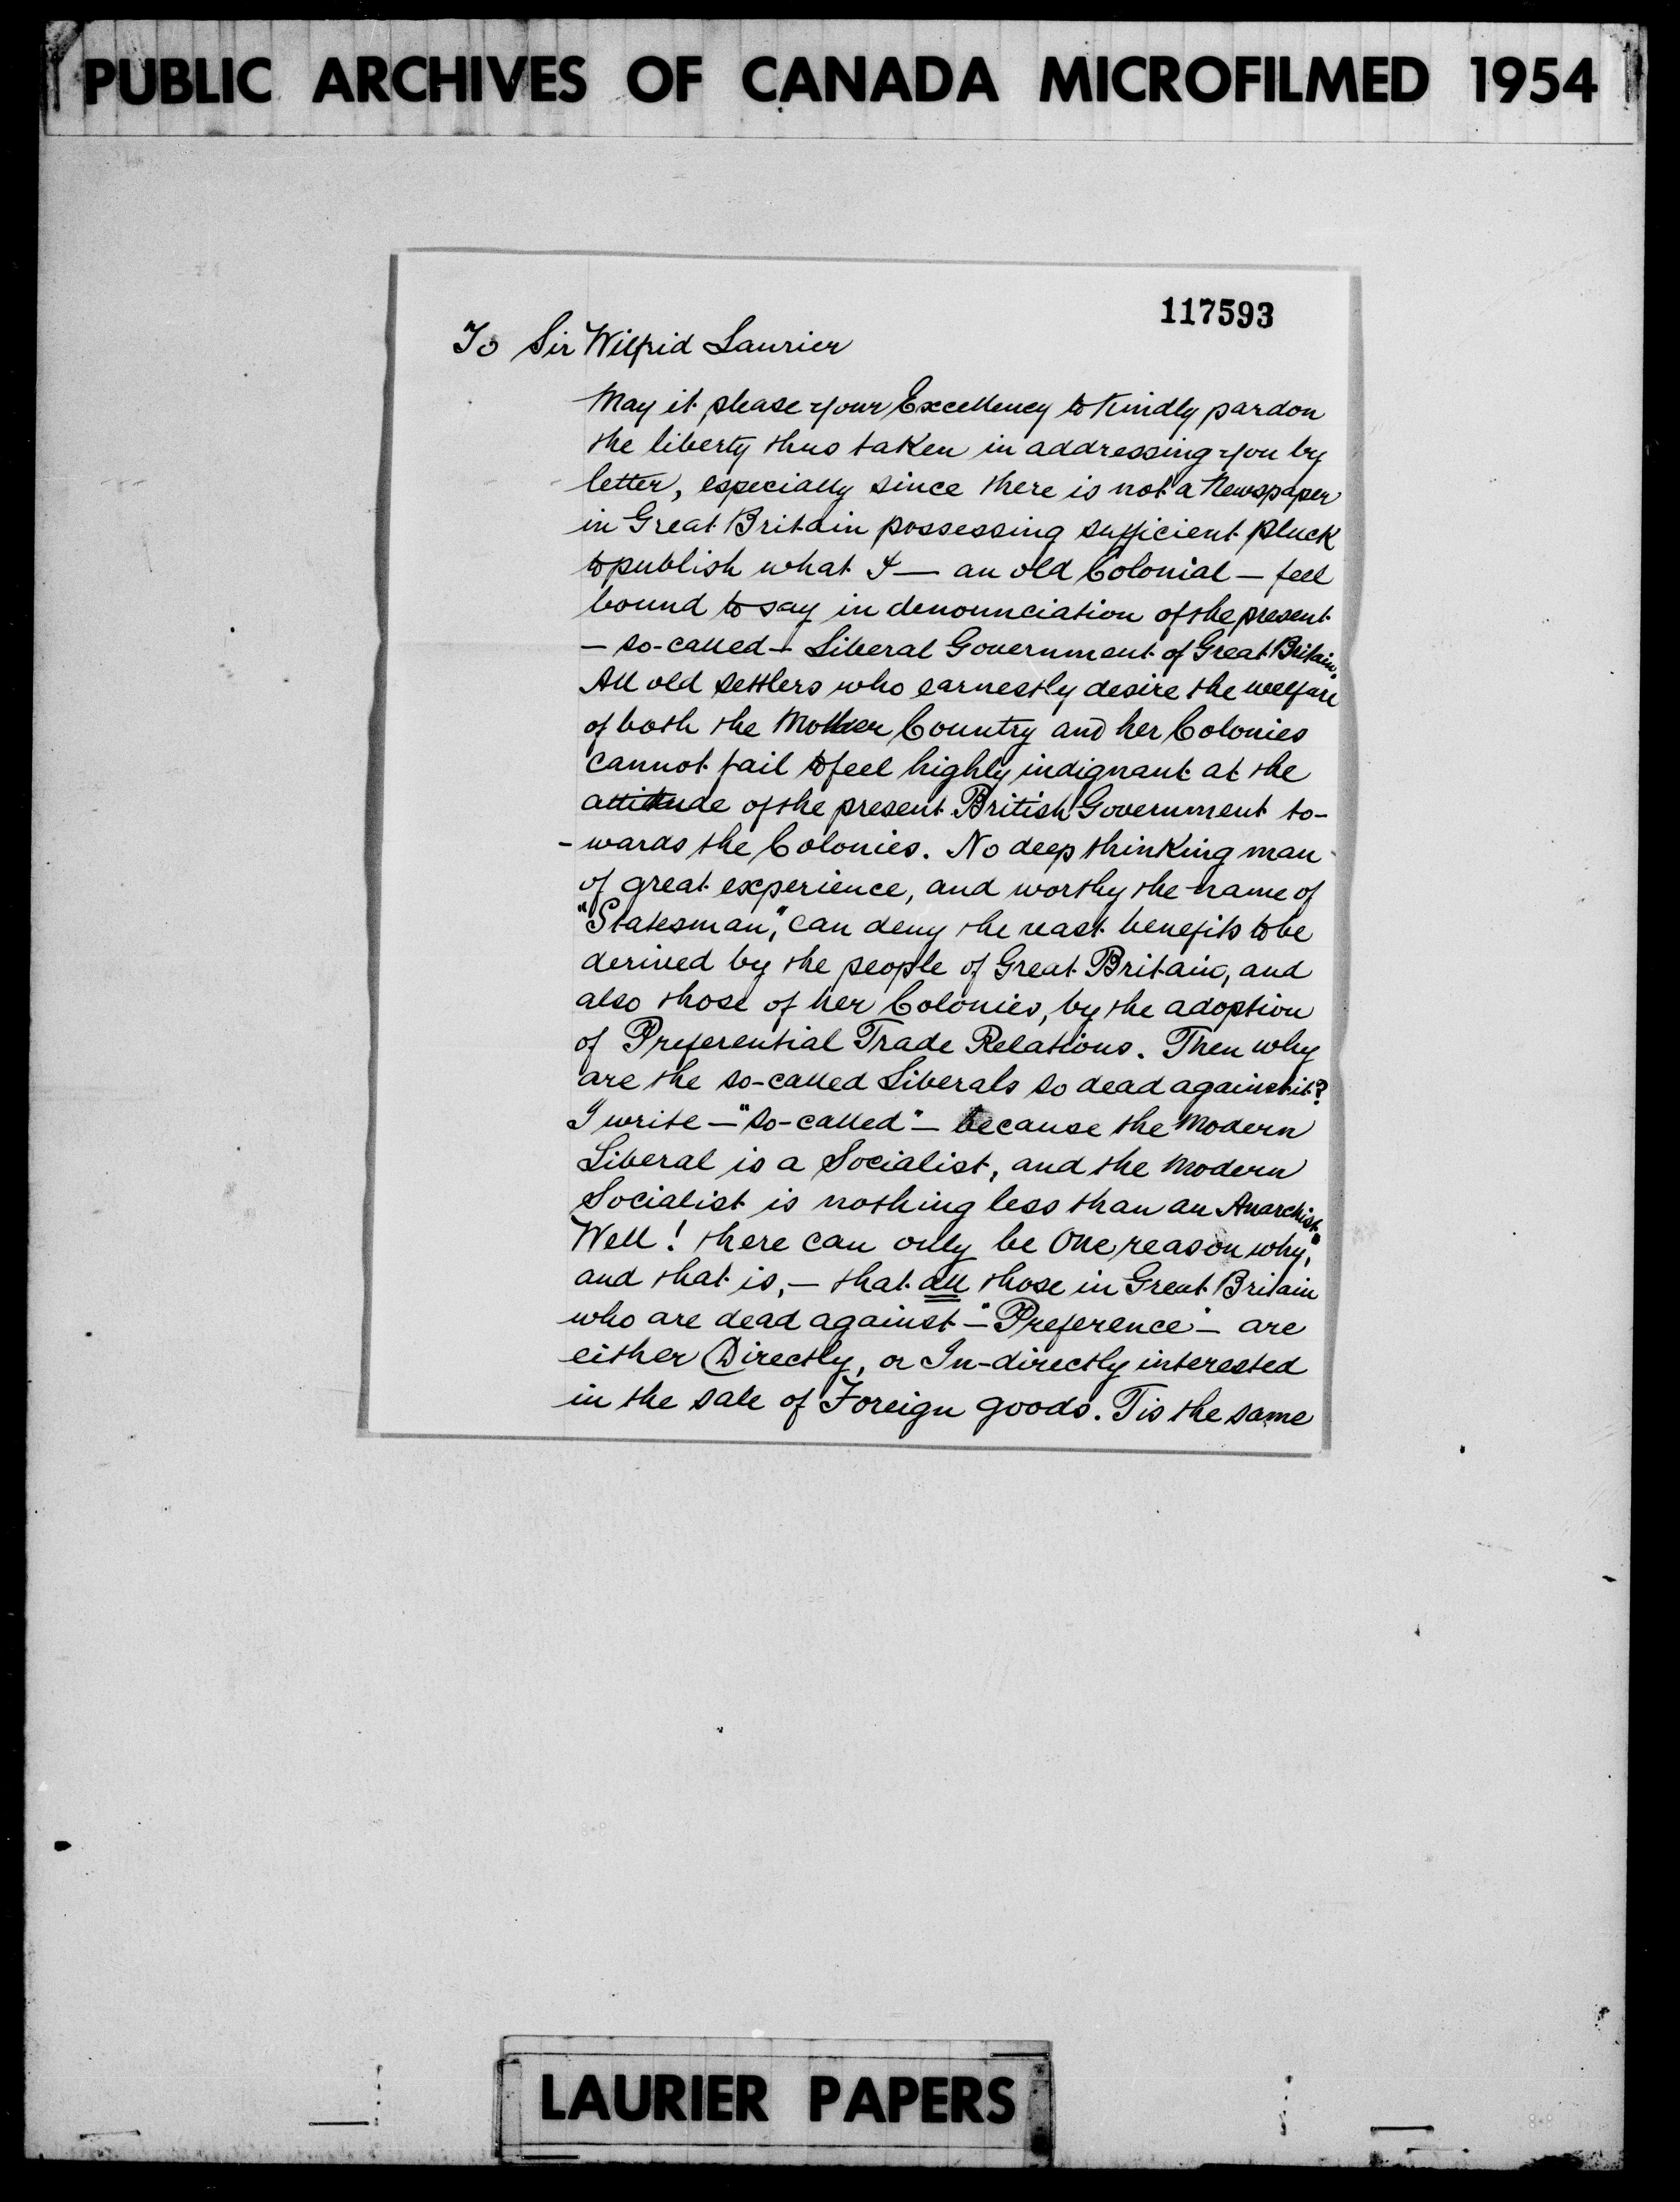 PUBLIC ARCHIVES OF CANADA MICROFILMED 1954
117593
To Sir Wilfrid Laurier
May it please your Excellency to Kindly pardon
the liberty thus taken in addressing you by
letter, especially since there is not a Newspaper
in Great Britain possessing sufficient pluck
to publish what I — an old Colonial — feel
bound to say in denounciation of the present
— so-called — Liberal Government of Great Britain.
All old settlers who earnestly desire the welfare
of both the Mother Country and her Colonies
cannot fail to feel highly indignant at the
attitude of the present British Government to-
-wards the Colonies. No deep thinking man
of great experience, and worthy the name of
"Statesman," can deny the vast benefits to be
derived by the people of Great Britain, and
also those of her Colonies, by the adoption
of Preferential Trade Relations. Then why
are the so-called Liberals so dead against it?
I write — "so-called" — because the Modern
Liberal is a Socialist, and the Modern
Socialist is nothing less than an Anarchist.
Well! there can only be One reason why,"
and that is, — that all those in Great Britain
who are dead against — "Preference" — are
either Directly, or In-directly interested
in the sale of Foreign goods. Tis the same
LAURIER PAPERS